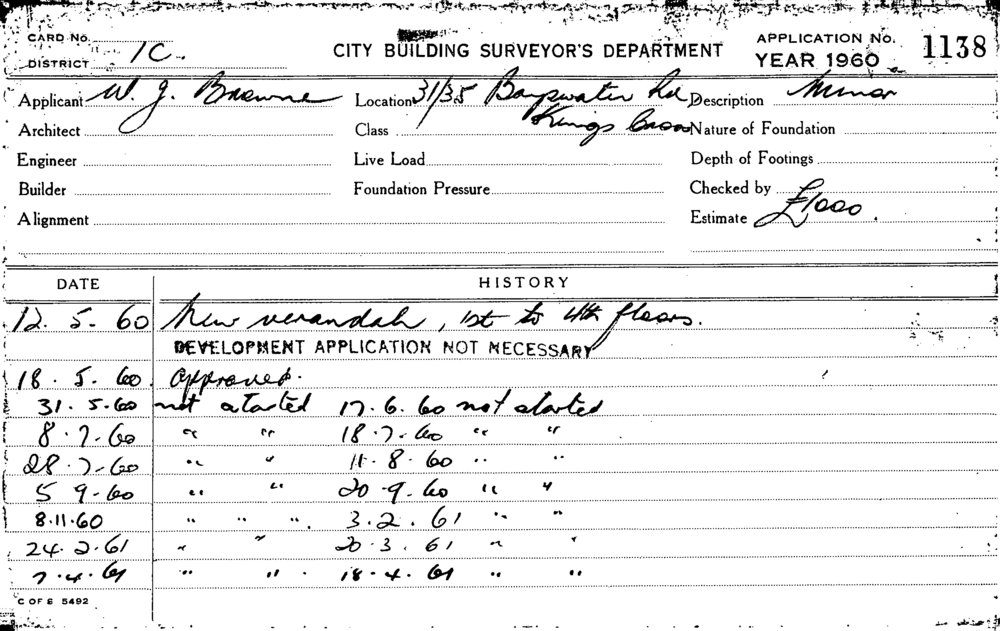 CARD No. CITY BUILDING SURVEYOR'S DEPARTMENT APPLICATION No. 1138
DISTRICT 1C. YEAR 1960
Applicant W. J. Browne Location 31/35 Bayswater Rd Description Minor
Architect Class Kings Cross Nature of Foundation
Engineer Live Load Depth of Footings
Builder Foundation Pressure Checked by
Alignment Estimate £1,000.
DATE HISTORY
12. 5. 60 New verandah, 1st to 4th floors.
DEVELOPMENT APPLICATION NOT NECESSARY
18. 5. 60. Approved.
31. 5. 60 not started 17. 6. 60 not started
8. 7. 60 " " 18. 7. 60 " "
28. 7. 60 " " 11. 8. 60 " "
5 9. 60 " " 20. 9. 60 " "
8.11.60 " " " 3. 2. 61 " "
24. 2. 61 " " 20. 3. 61 " "
7. 4. 61 " " 18. 4. 61 " "
C OF S 5492